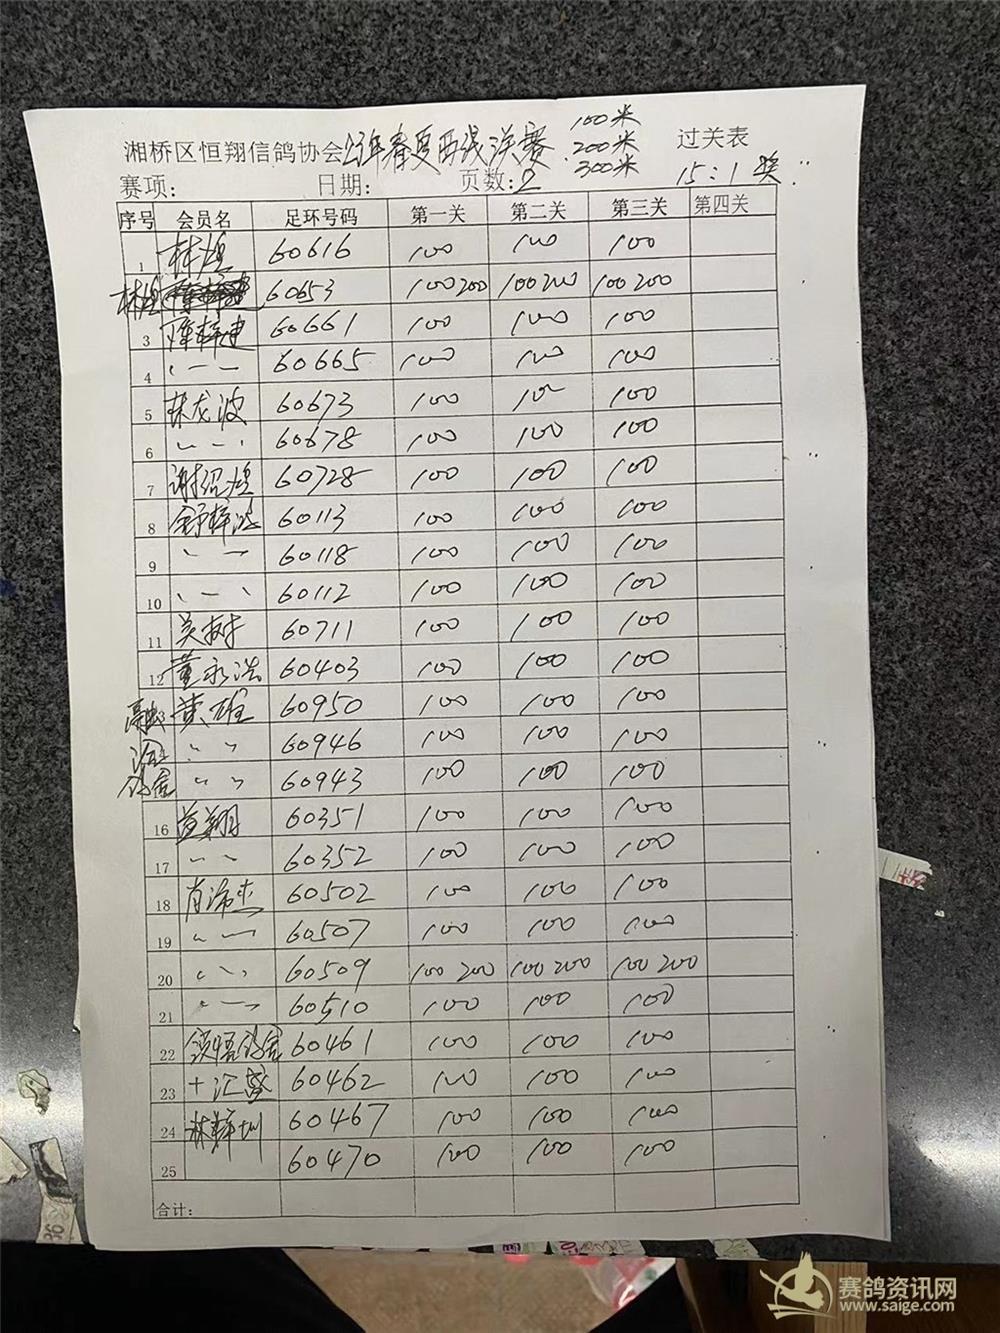 100米
湘桥区恒翔信鸽协会23年春夏西线决赛 200米 过关表
300米
赛项: 日期: 页数:2 15:1奖
序号 会员名 足环号码 第一关 第二关 第三关 第四关
1 林煌 60616 100 100 100
林煌 60653 100 200 100 200 100 200
3 陈梓建 60661 100 100 100
4 〃 60665 100 100 100
5 林龙波 60673 100 100 100
6 〃 60678 100 100 100
7 谢绍煌 60728 100 100 100
8 舒梓 60113 100 100 100
9 〃 60118 100 100 100
10 〃 60112 100 100 100
11 吴树 60711 100 100 100
12 董永浩 60403 100 100 100
黄雄 60950 100 100 100
〃 60946 100 100 100
鸽舍 〃 60943 100 100 100
16 翔 60351 100 100 100
17 〃 60352 100 100 100
18 肖沛杰 60502 100 100 100
19 〃 60507 100 100 100
20 〃 60509 100 200 100 200 100 200
21 〃 60510 100 100 100
22 领悟鸽舍 60461 100 100 100
23 十汇盛 60462 100 100 100
24 林梓圳 60467 100 100 100
25 60470 100 100 100
合计:
赛鸽资讯网
www.saige.com